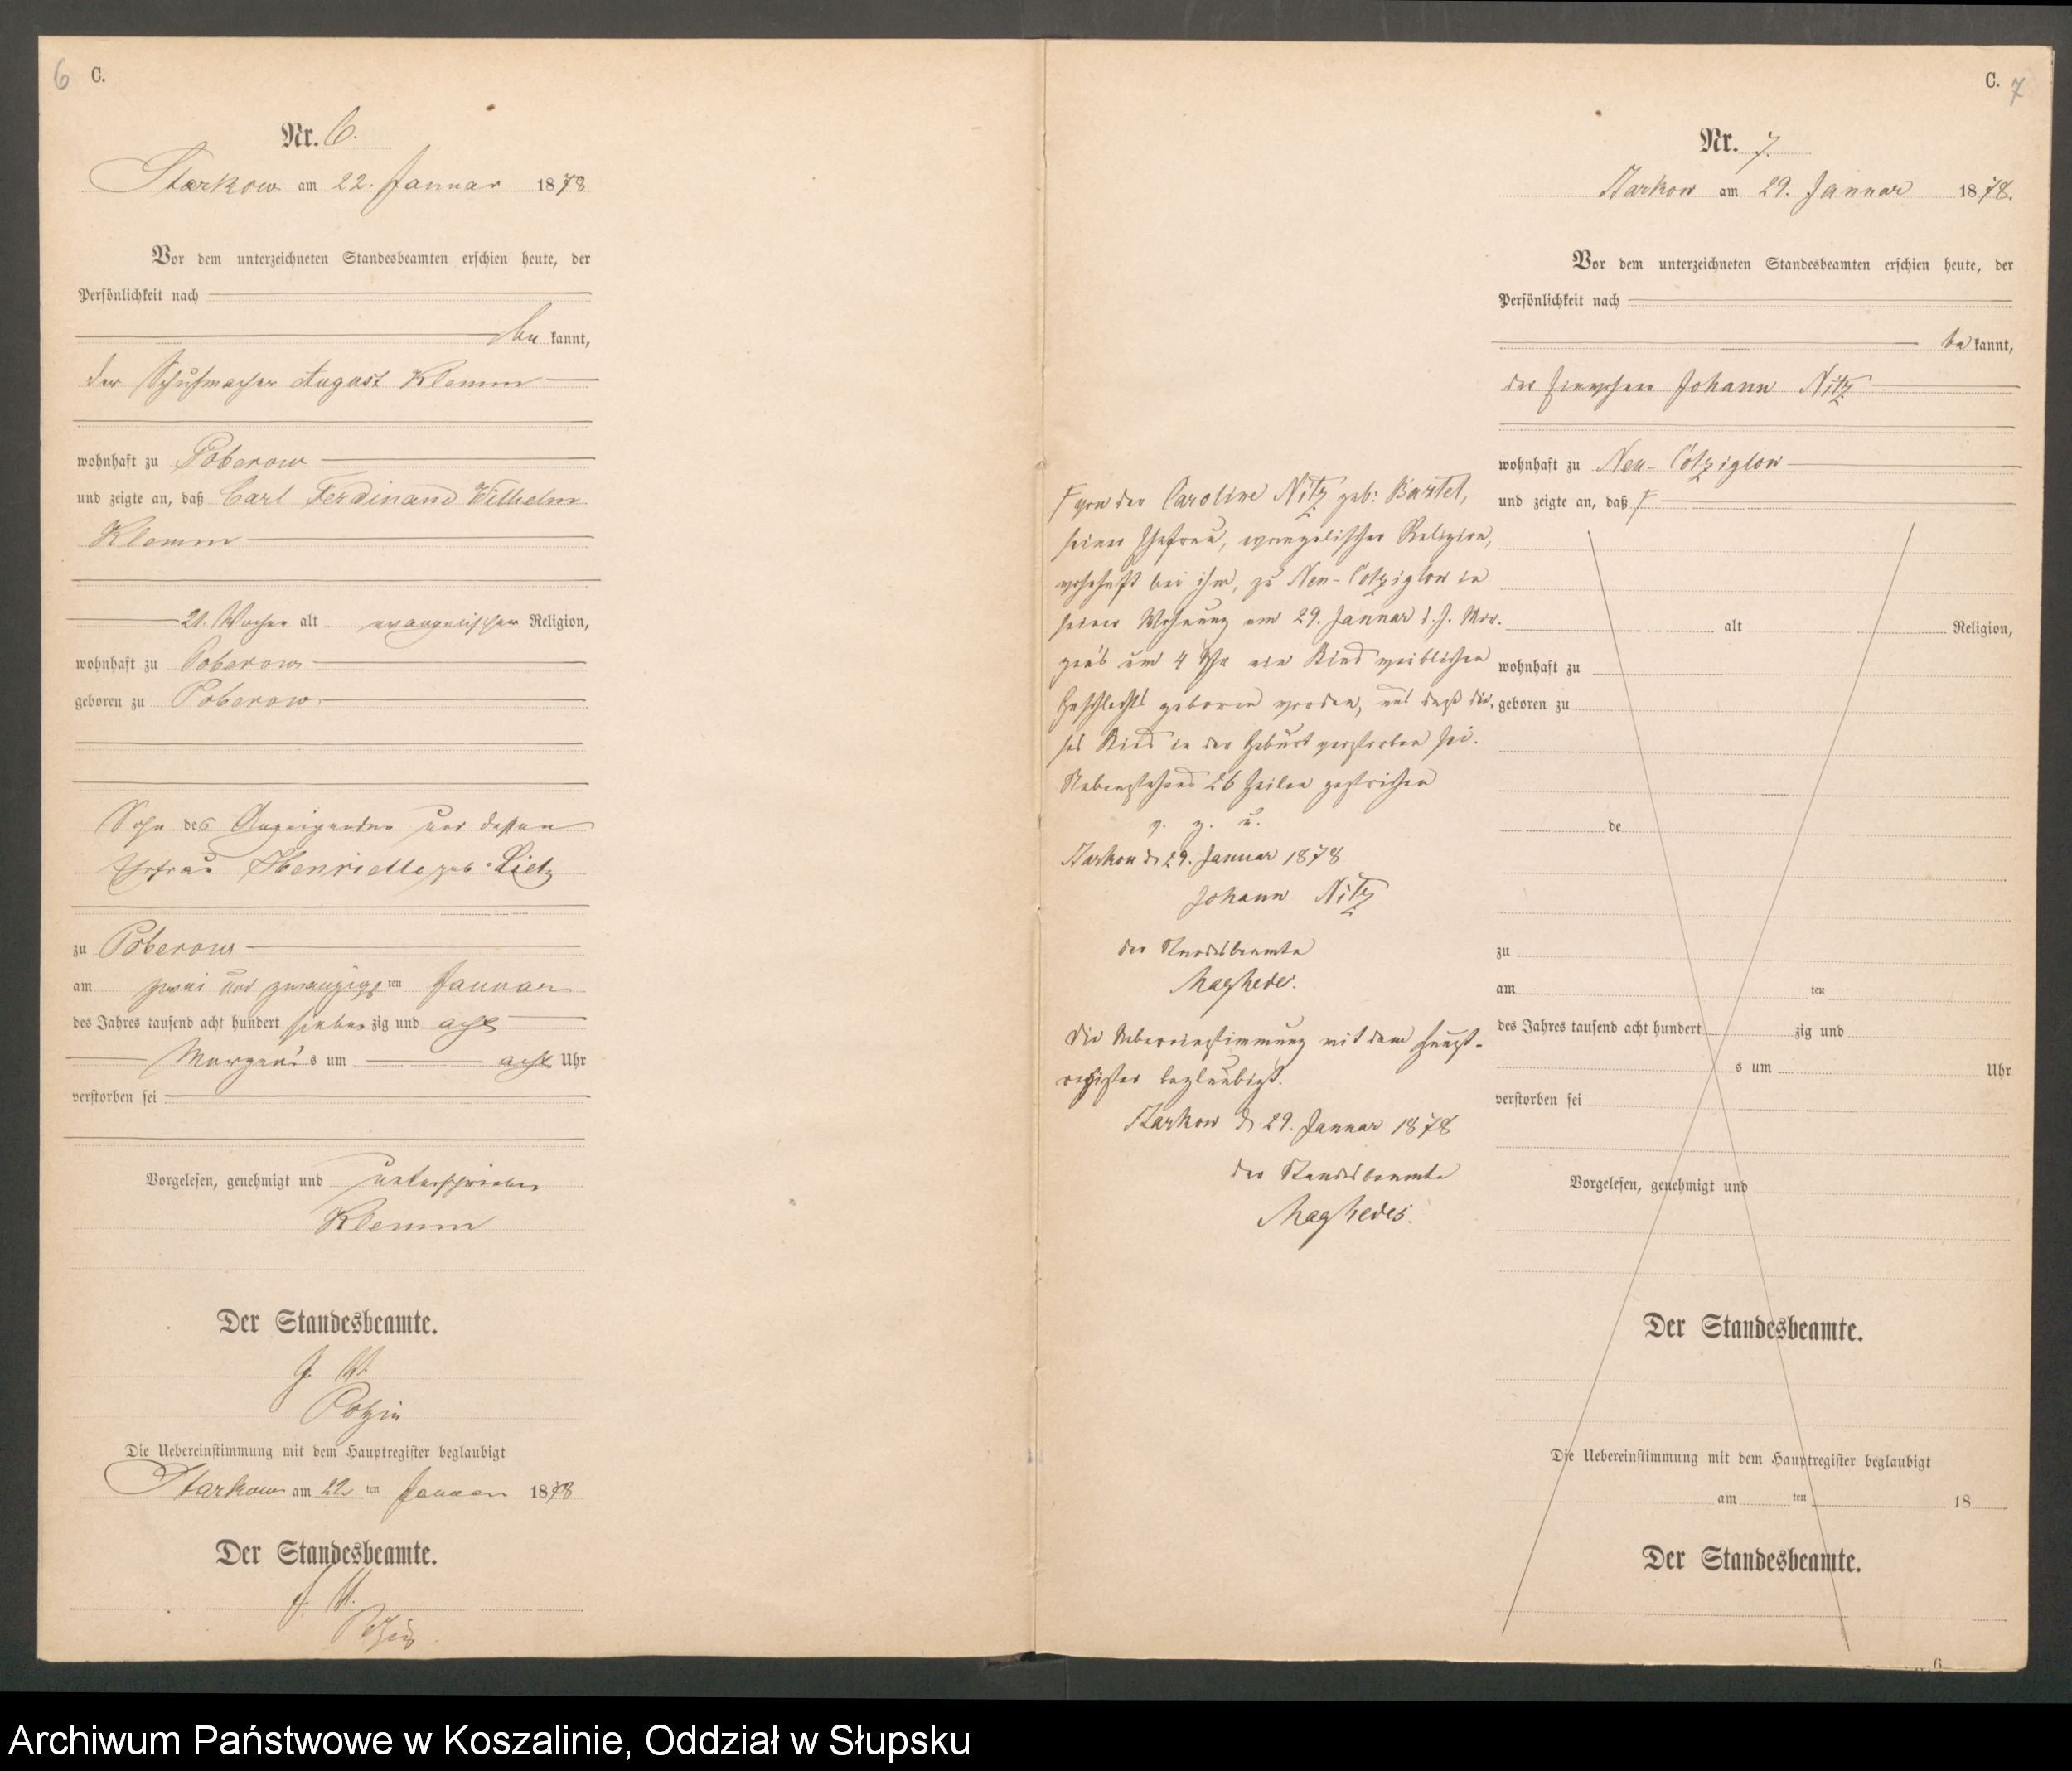 6 C.
Nr. 6.
Starkow am 22. Januar 1878.
Vor dem unterzeichneten Standesbeamten erschien heute, der
Persönlichkeit nach
bekannt,
der Schuhmacher August Klemm
wohnhaft zu Poberow
und zeigte an, daß Carl Ferdinand Wilhelm
Klemm
21. Wochen alt evangelischer Religion,
wohnhaft zu Poberow
geboren zu Poberow
Sohn des Anzeigenden und dessen
Ehefrau Henriette geb. Lietz
zu Poberow
am zwei und zwanzigsten Januar
des Jahres tausend acht hundert siebenzig und acht
Morgens um acht Uhr
verstorben sei
Vorgelesen, genehmigt und unterschrieben
Klemm
Der Standesbeamte.
J. V.
Potzin
Die Uebereinstimmung mit dem Hauptregister beglaubigt
Starkow am 22ten Januar 1878
Der Standesbeamte.
J. V.
C. 7
Nr. 7.
Starkow am 29. Januar 1878.
Vor dem unterzeichneten Standesbeamten erschien heute, der
Persönlichkeit nach
bekannt,
der Einwohner Johann Nitz
wohnhaft zu Neu-Cotziglow
und zeigte an, daß F
F von der Caroline Nitz geb: Bartel,
seiner Ehefrau, evangelischer Religion,
wohnhaft bei ihm, zu Neu-Cotziglow in
seiner Wohnung am 29. Januar d. J. Mor-
gens um 4 Uhr ein Kind weiblichen
Geschlechts geboren worden, und daß die-
ses Kind in der Geburt verstorben sei.
Nebenstehend 26 Zeilen gestrichen
v. g. u.
Starkow d. 29. Januar 1878
Johann Nitz
der Standesbeamte
Die Uebereinstimmung mit dem Haupt-
register beglaubigt.
Starkow d. 29. Januar 1878
der Standesbeamte
alt Religion,
wohnhaft zu
geboren zu
de
zu
am ten
des Jahres tausend acht hundert zig und
s um Uhr
verstorben sei
Vorgelesen, genehmigt und
Der Standesbeamte.
Die Uebereinstimmung mit dem Hauptregister beglaubigt
am ten 18
Der Standesbeamte.
6
Archiwum Państwowe w Koszalinie, Oddział w Słupsku